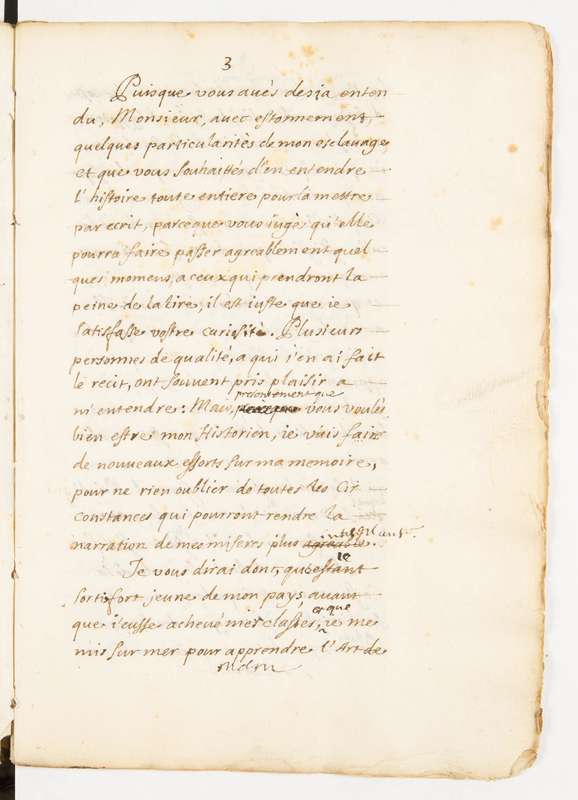 3
Puisque vous avés desia enten
du, Monsieur, avec estonnement,
quelques particularités de mon esclavage
et que vous souhaittés d'en entendre
l'histoire toute entiere pour la mettre
par ecrit, parceque vous iugés qu'elle
pourra faire passer agreablement quel
ques momens, a ceux qui prendront la
peine de la lire, il est iuste que ie
satisfasse vostre curiosité. Plusieurs
personnes de qualité, a qui i'en ai fait
le recit, ont souvent pris plaisir a
presentement que
m'entendre. Mais, vous voulés
bien estre mon Historien, ie vais faire
de nouveaux efforts sur ma memoire,
pour ne rien oublier de toutes les Cir
constances qui pourront rendre la
narration de mes miseres plus agreable.
ie
Je vous dirai donc, qu'estant
sorti fort jeune de mon pays, avant
que
que i'eusse achevé mes classes, ie me
mis sur mer pour apprendre l'Art de